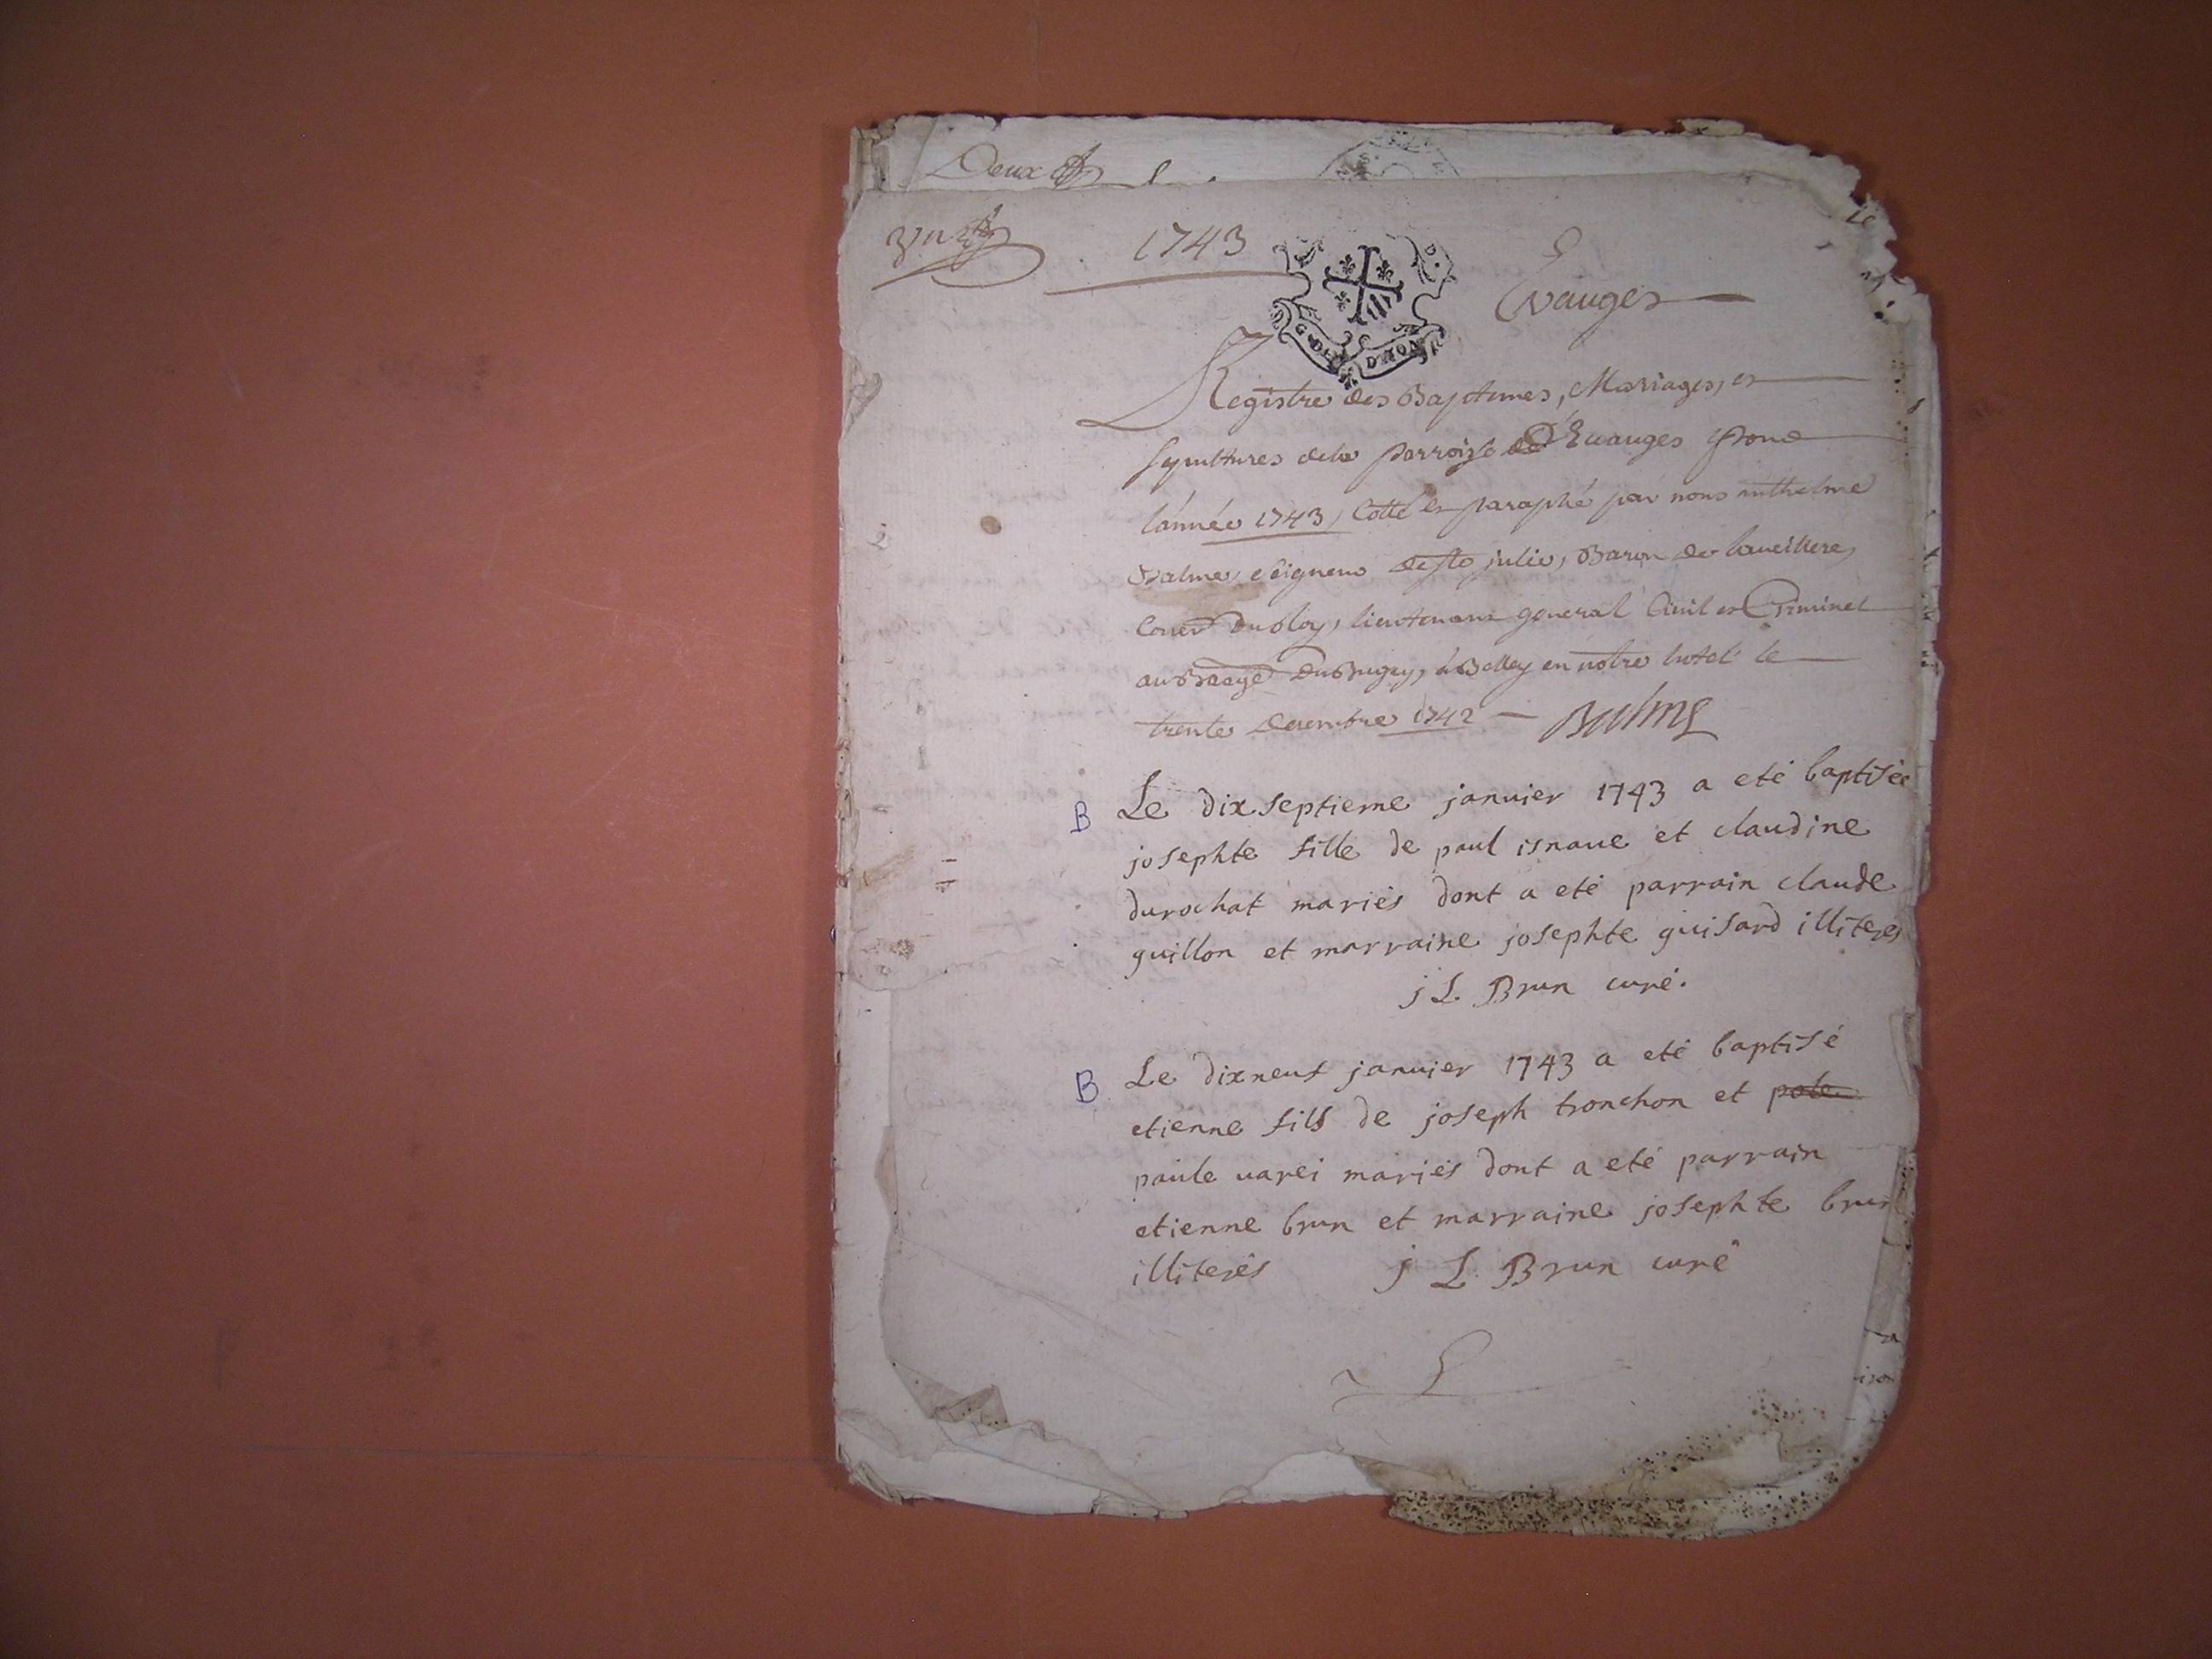 Deux
1743
Evauges
Registre des Baptemes, Mariages, et
sepultures dela parroisse D'Evauges pour
l'année 1743, Cotté et paraphé par nous anthelme
Balme, seigneur de ste julie, Baron de
Coner du Roy, lieutenant general Civil et Criminel
au Baage du Bugey, à Belley en notre hotel le
trente decembre 1742 Balme
B Le dix septieme janvier 1743 a eté baptisée
josephte fille de paul isnaue et claudine
durochat mariés dont a eté parrain claude
guillon et marraine josephte guisard illiterés
j L Brun curé.
B Le dixneuf janvier 1743 a eté baptisé
etienne fils de joseph tronchon et pole
paule varei mariés dont a eté parrain
etienne brun et marraine josephte brun
illiterés j L Brun curé